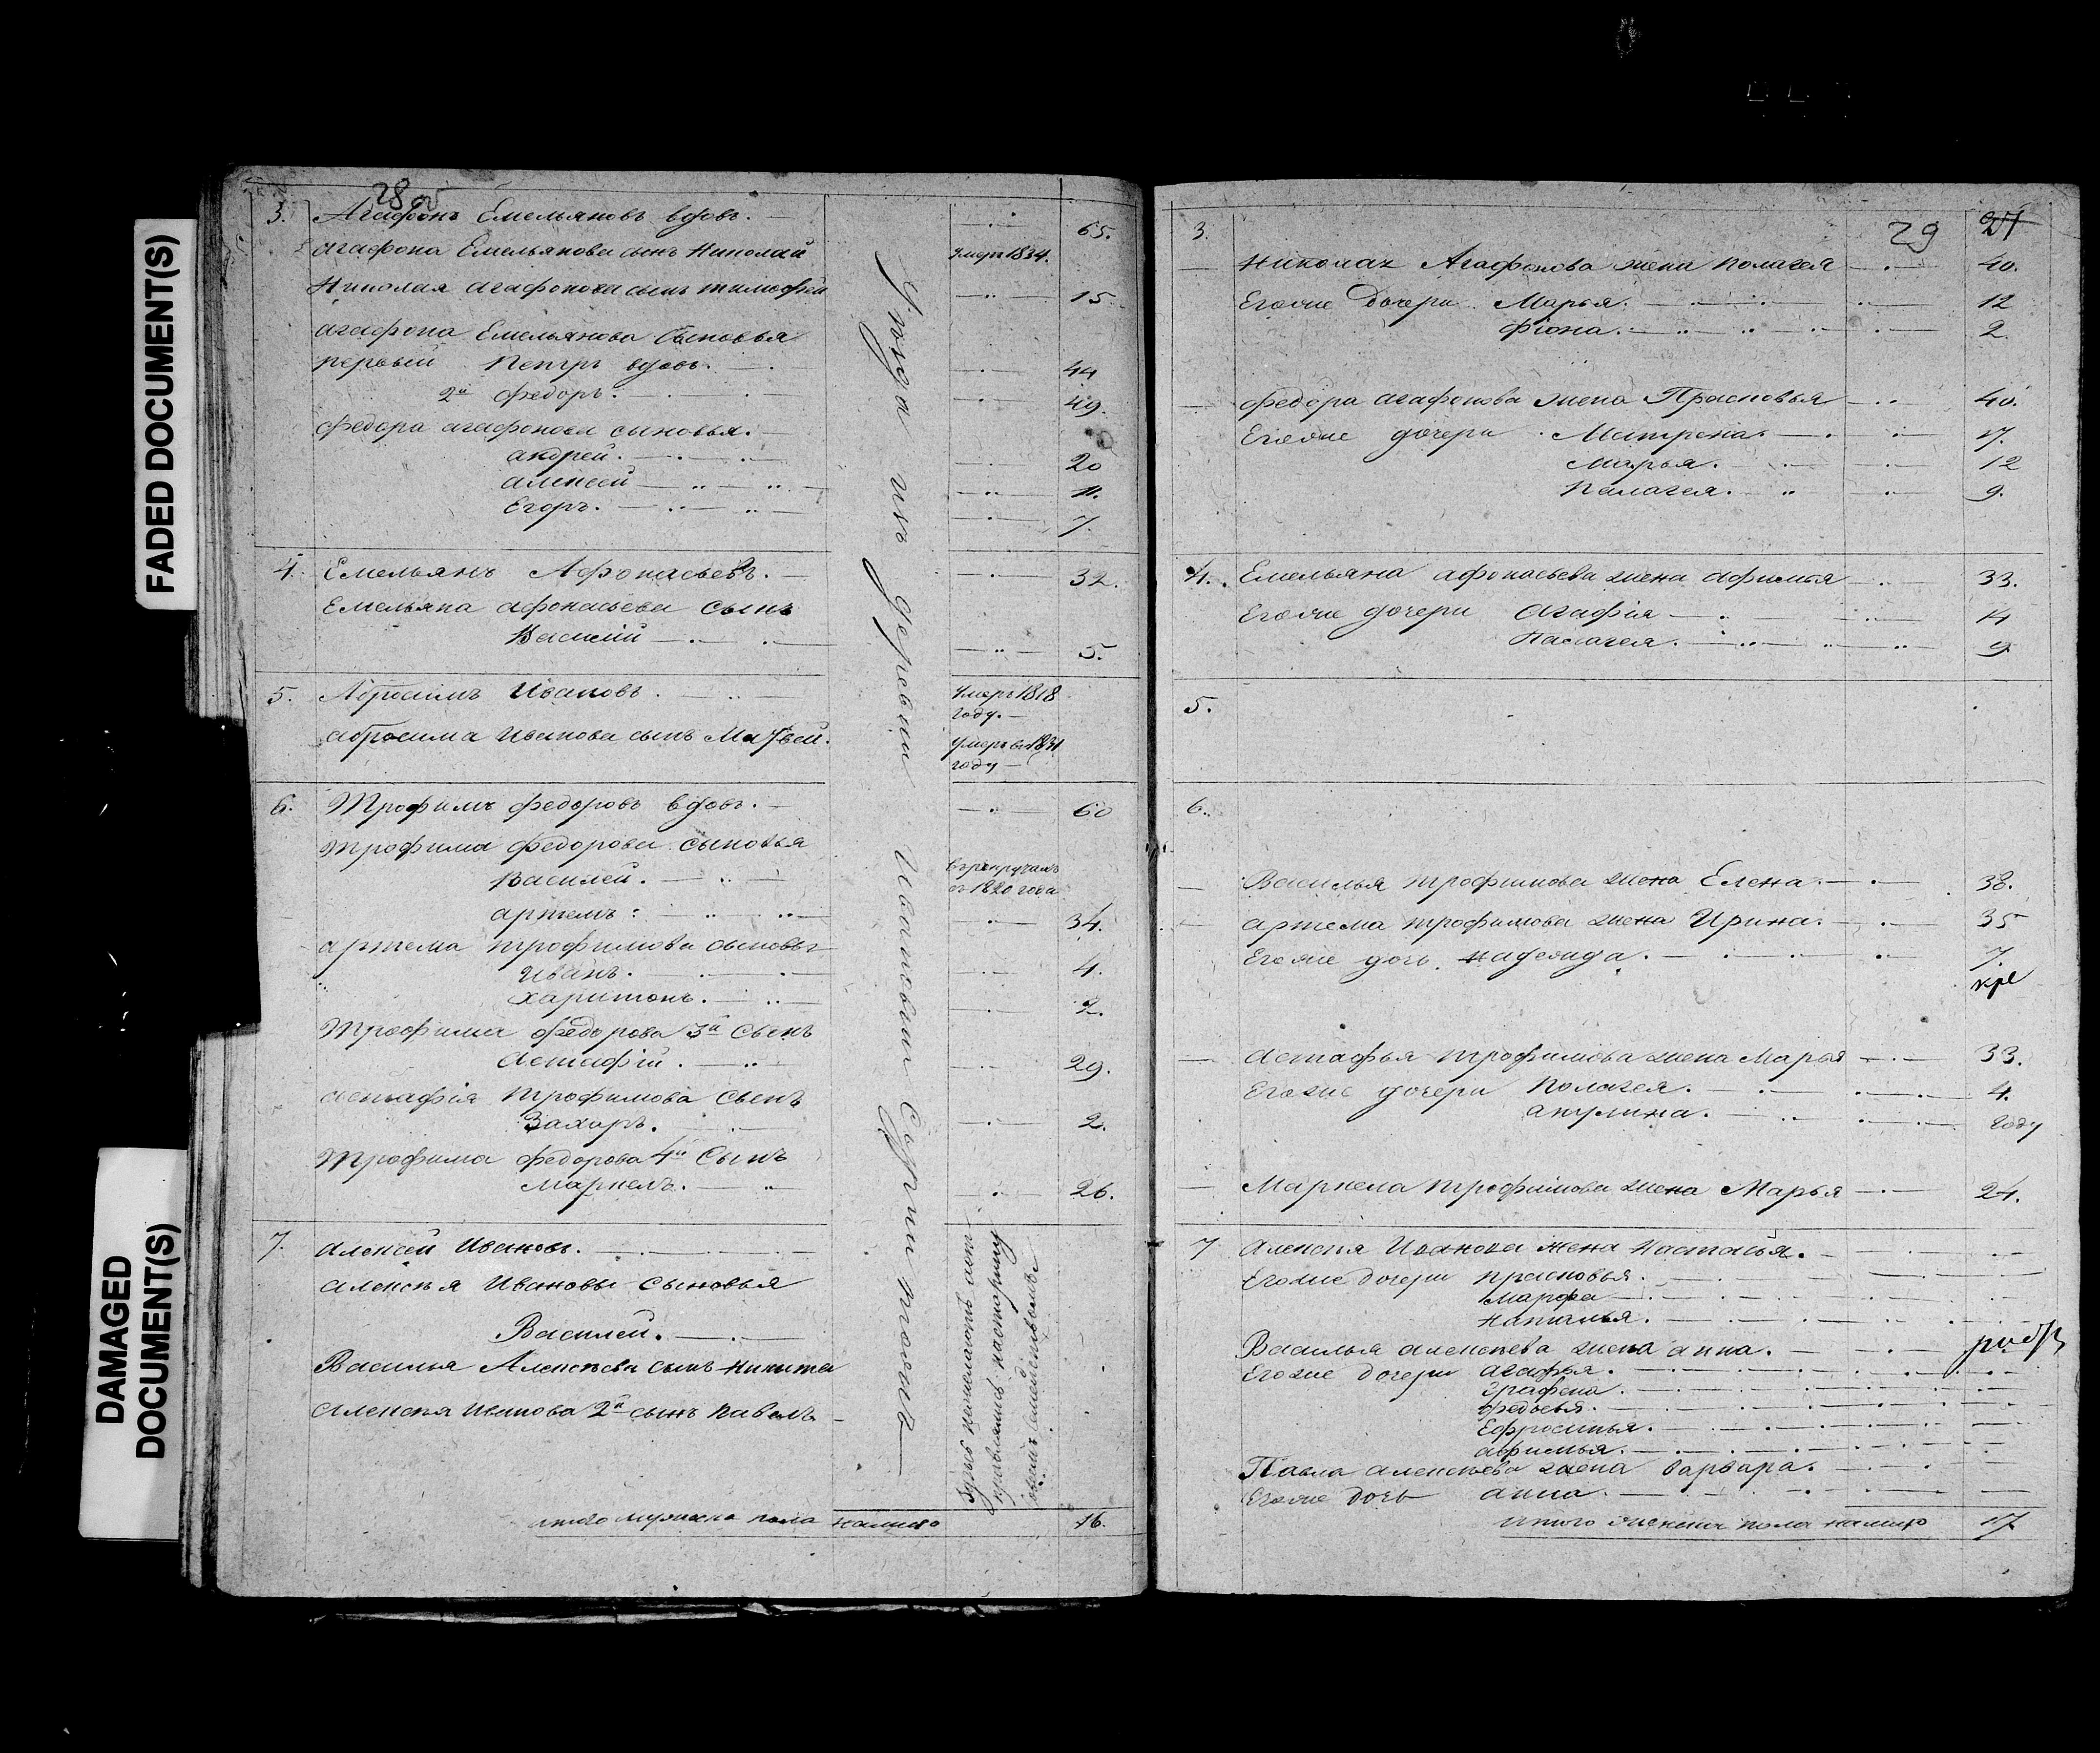 FADED DOCUMENT(S)
DAMAGED
DOCUMENT(S)
28 об
3. Агафонъ Емельяновъ вдовъ. 65.
Агафона Емельянова сынъ Николай умеръ 1834.
Николая Агафонова сынъ тимофей 15.
агафона Емельянова сыновья
первый Петръ вдовъ. 44
2й федоръ. 49.
федора агафонова сыновья.
андрей. 20
алексей 11.
Егоръ. 7.
4. Емельянъ Афонасьевъ. 32.
Емельяна афонасьева сынъ
Василiй 5.
5. Абросимъ Ивановъ. умеръ 1818
году.
абросима Иванова сынъ Матвей. умеръ в 1831
году
6. Трофимъ федоровъ вдовъ. 60
трофима федорова сыновья
Василей. въ рекрутахъ
съ 1820 года
артемъ. 34.
артема трофимова сыновья
Иванъ. 4.
харитонъ. 2.
Трофима федорова 3й сынъ
Астафiй. 29.
астафiя трофимова сынъ
Захаръ. 2.
Трофима федорова 4й сынъ
Маркелъ. 26.
7. алексей Ивановъ.
алексея Иванова сыновья
Василей.
Василья Алексеева сынъ никита
алексея Иванова 2й сынъ павелъ
итого мужеска пола налицо 16.
уезда изъ деревни Ивановки
семействомъ
29 27
3.
николая Агафонова жена полагея 40.
Егоже Дочери Марья. 12
фiона. 2.
федора агафонова жена Прасковья 40.
Егоже дочери Матрена. 17.
Марья. 12
Палагея. 9.
4. Емельяна афонасьева жена афимья 33.
Егоже дочери Агафiя 14
Палагея. 9
5.
6.
Василья трофимова жена Елена. 38.
артема трофимова жена Ирина. 35
Егоже дочь. надежда. 7.
Астафья трофимова жена Марья 33.
Егоже дочери полагея. 4.
акулина. году
Маркела трофимова жена Марья 24.
7 Алексея Иванова жена Настасья.
Егоже дочери прасковья.
Марфа
Наталья.
Василья алексеева жена анна.
Егоже дочери агафья.
Графена.
федосья.
Ефросинья.
афимья.
Павла алексеева жена варвара.
Егоже дочь анна.
итого женска пола налицо 17